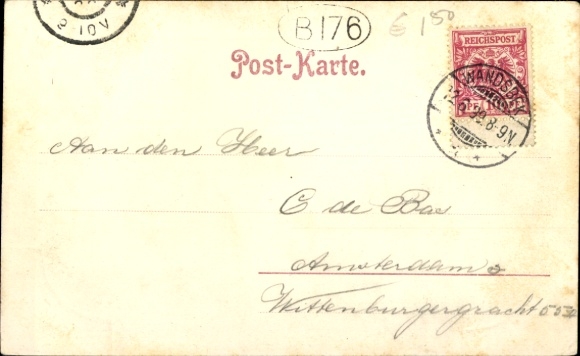 2-10V
B176
€ 150
REICHSPOST
Post-Karte.
WANDSBEK
8-9N.
Aan den Heer
C de Bas
Amsterdam
Wittenburgergracht